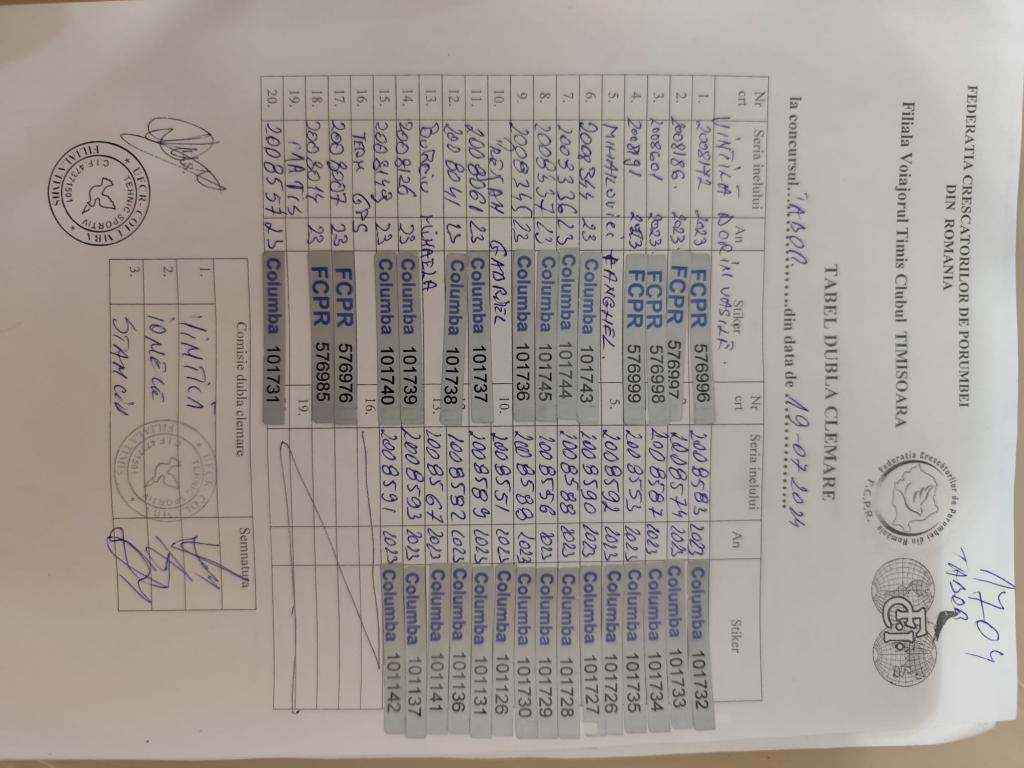 1704
TABOR
FEDERATIA CRESCATORILOR DE PORUMBEI
DIN ROMANIA
Filiala Voiajorul Timis Clubul TIMISOARA
Federatia Crescătorilor de Porumbei din România
F.C.P.R.
FCI
TABEL DUBLA CLEMARE
la concursul..TABOR.......din data de 19-07-2024
Nr crt Seria inelului An Stiker Nr crt Seria inelului An Stiker
VINTILĂ DORIN VASILE.
1. 2008172 2023 FCPR 576996 2008583 2023 Columba 101732
2. 2008186. 2023. FCPR 576997 2008574 2023 Columba 101733
3. 2008601 2023 FCPR 576998 2008587 2023 Columba 101734
4. 200891 2023 FCPR 576999 2008553 2023 Columba 101735
5. MIHAILOVICI ANGHEL. 5. 2008592 2023 Columba 101726
6. 2008344 23 Columba 101743 2008590 2023 Columba 101727
7. 2008336 23 Columba 101744 2008588 2023 Columba 101728
8. 2008337 23 Columba 101745 2008556 2023 Columba 101729
9. 2008345 23 Columba 101736 2008580 2023 Columba 101730
10. GABRIEL 10. 2008551 2023 Columba 101126
11. 2008061 23 Columba 101737 2008589 2023 Columba 101131
12. 2008041 23 Columba 101738 2008582 2023 Columba 101136
13. MIHAELA 13. 2008567 2023 Columba 101141
14. 2008126 23 Columba 101739 2008593 2023 Columba 101137
15. 2008149 23 Columba 101740 2008591 2023 Columba 101142
16. TEAM GPS 16.
17. 2008007 23 FCPR 576976
18. 2008014 23 FCPR 576985
19. MATIS 19.
20. 2008557 23 Columba 101731
Comisie dubla clemare Semnatura
1. VINTILĂ
2. IONELE
3. STANCIU
U.F.C.R. COLUMBA
TEHNIC SPORTIV
C.I.F. 47371501
FILIALA TIMIS